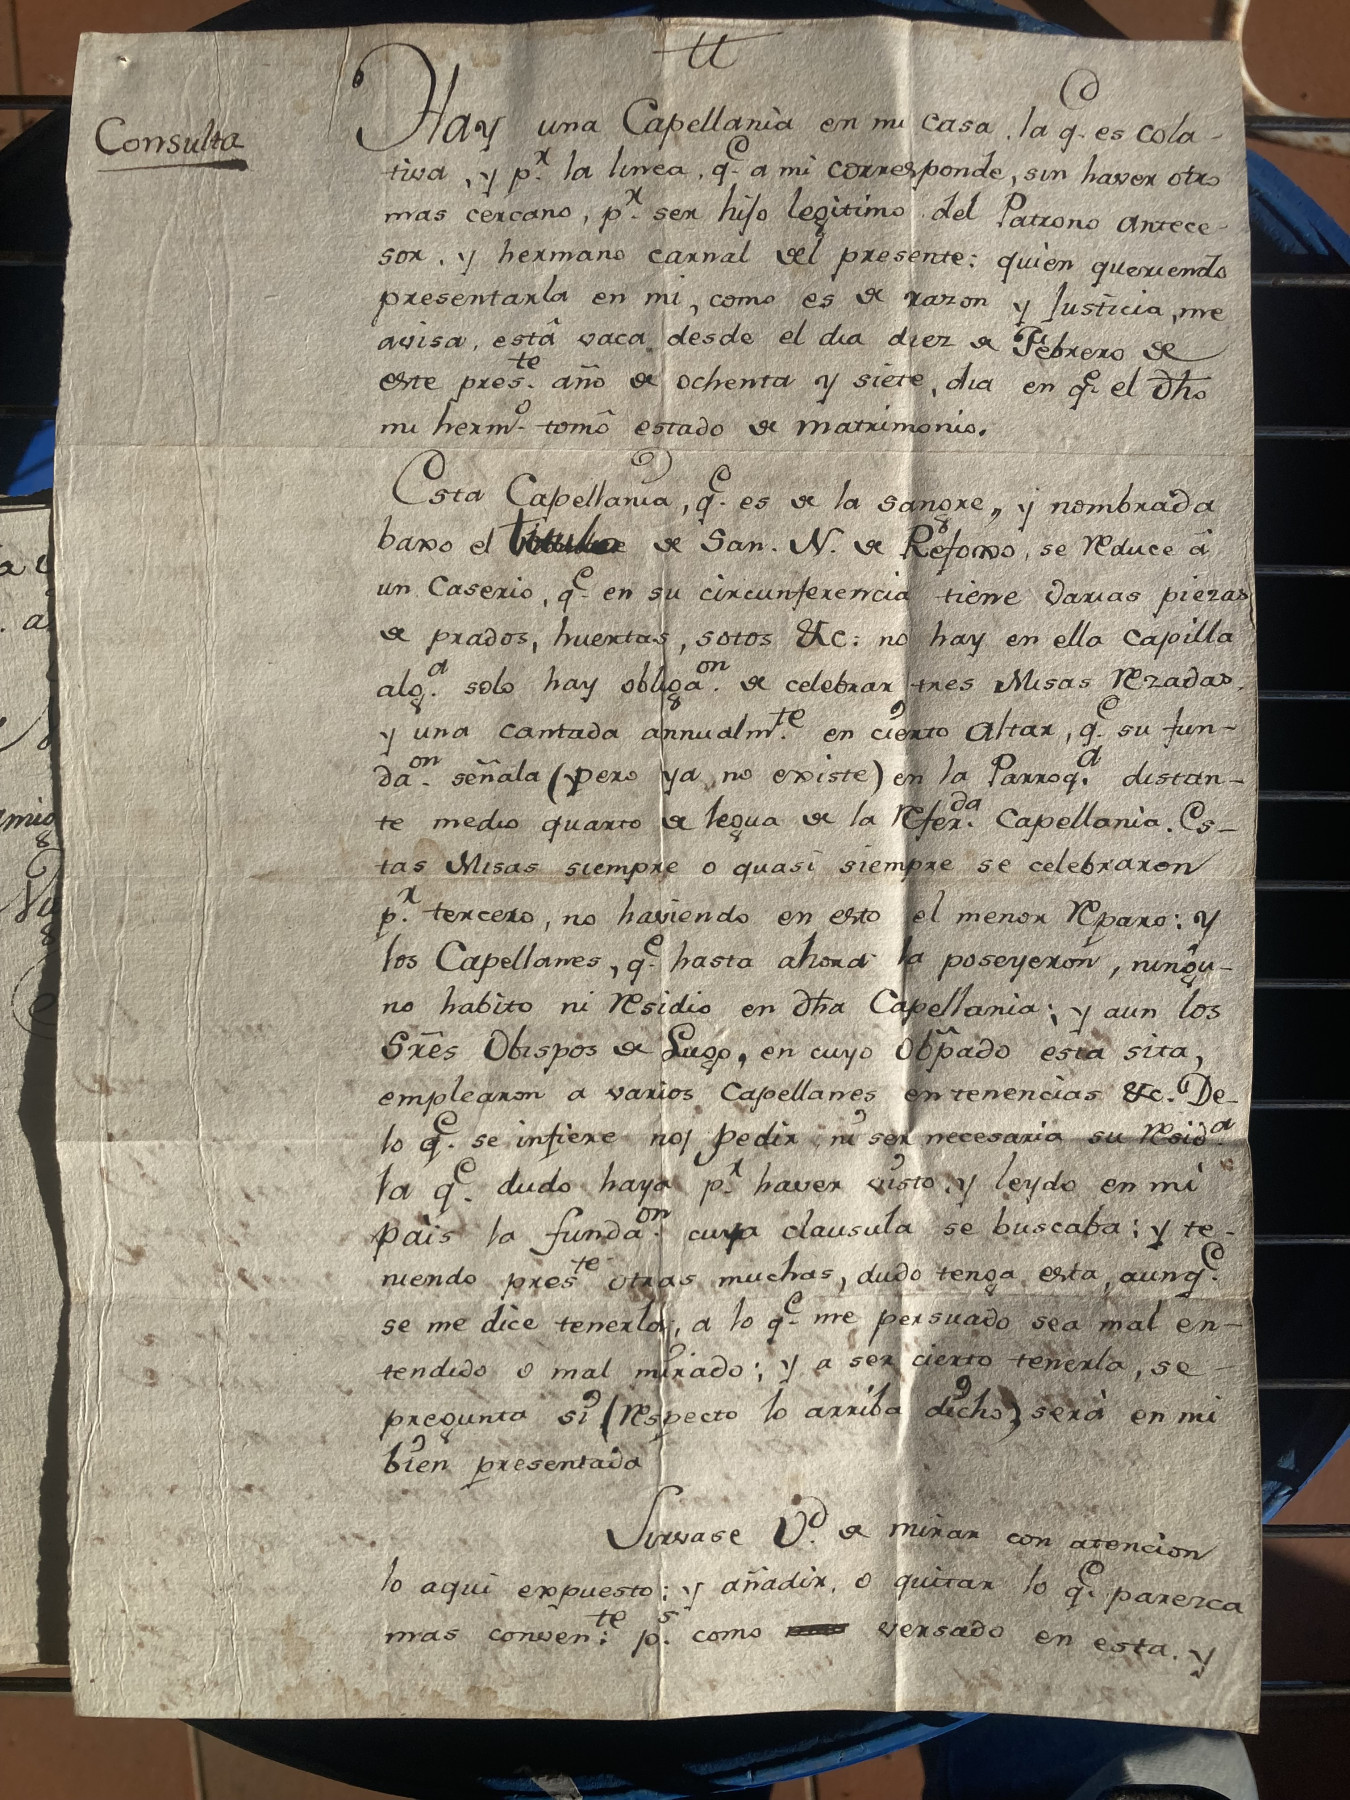 Consulta
Hay una Capellanìa en mi casa, la q.e es cola-
tiva, y p.r la linea, q.e a mi corresponde, sin haver otro
mas cercano, p.r ser hijo legitimo del Patrono antece-
sor, y hermano carnal del presente: quien queriendo
presentarla en mi, como es de razon y Justicia, me
avisa, està vaca desde el dia diez de Febrero de
este pres.te año de ochenta y siete, dia en q.e el dho
mi herm.o tomò estado de matrimonio.
Esta Capellanìa, q.e es de la sangre, y nombrada
baxo el titulo de San. N. de Refoxo, se reduce à
un Caserio, q.e en su circunferencia tiene varias piezas
de prados, huertas, sotos &c: no hay en ella capilla
alg.a solo hay obliga.on de celebrar tres Misas rezadas,
y una cantada annualm.te en cierto Altar, q.e su fun-
da.on señala (pero ya no existe) en la Parroq.a distan-
te medio quarto de legua de la refer.da Capellanìa. Es-
tas Misas siempre o quasi siempre se celebraron
p.r tercero, no haviendo en esto el menor reparo: y
los Capellanes, q.e hasta ahora la poseyeron, ningu-
no habito ni residio en dha Capellania; y aun los
Srês Obispos de Lugo, en cuyo Obpado esta sita,
emplearon a varios Capellanes en tenencias &c. De-
lo q.e se infiere no pedir, ni ser necesaria su resid.a
la q.e dudo haya p.r haver visto, y leydo en mi
pais la funda.on cuya clausula se buscaba; y te-
niendo pres.te otras muchas, dudo tenga esta, aunq.e
se me dice tenerla, a lo q.e me persuado sea mal en-
tendido o mal mirado; y a ser cierto tenerla, se
pregunta si (respecto lo arriba dicho) serà en mi
bien presentada
Sirvase V.d de mirar con atencion
lo aqui expuesto; y añadir, o quitar lo q.e parezca
mas conven.te p.s como versado en esta, y